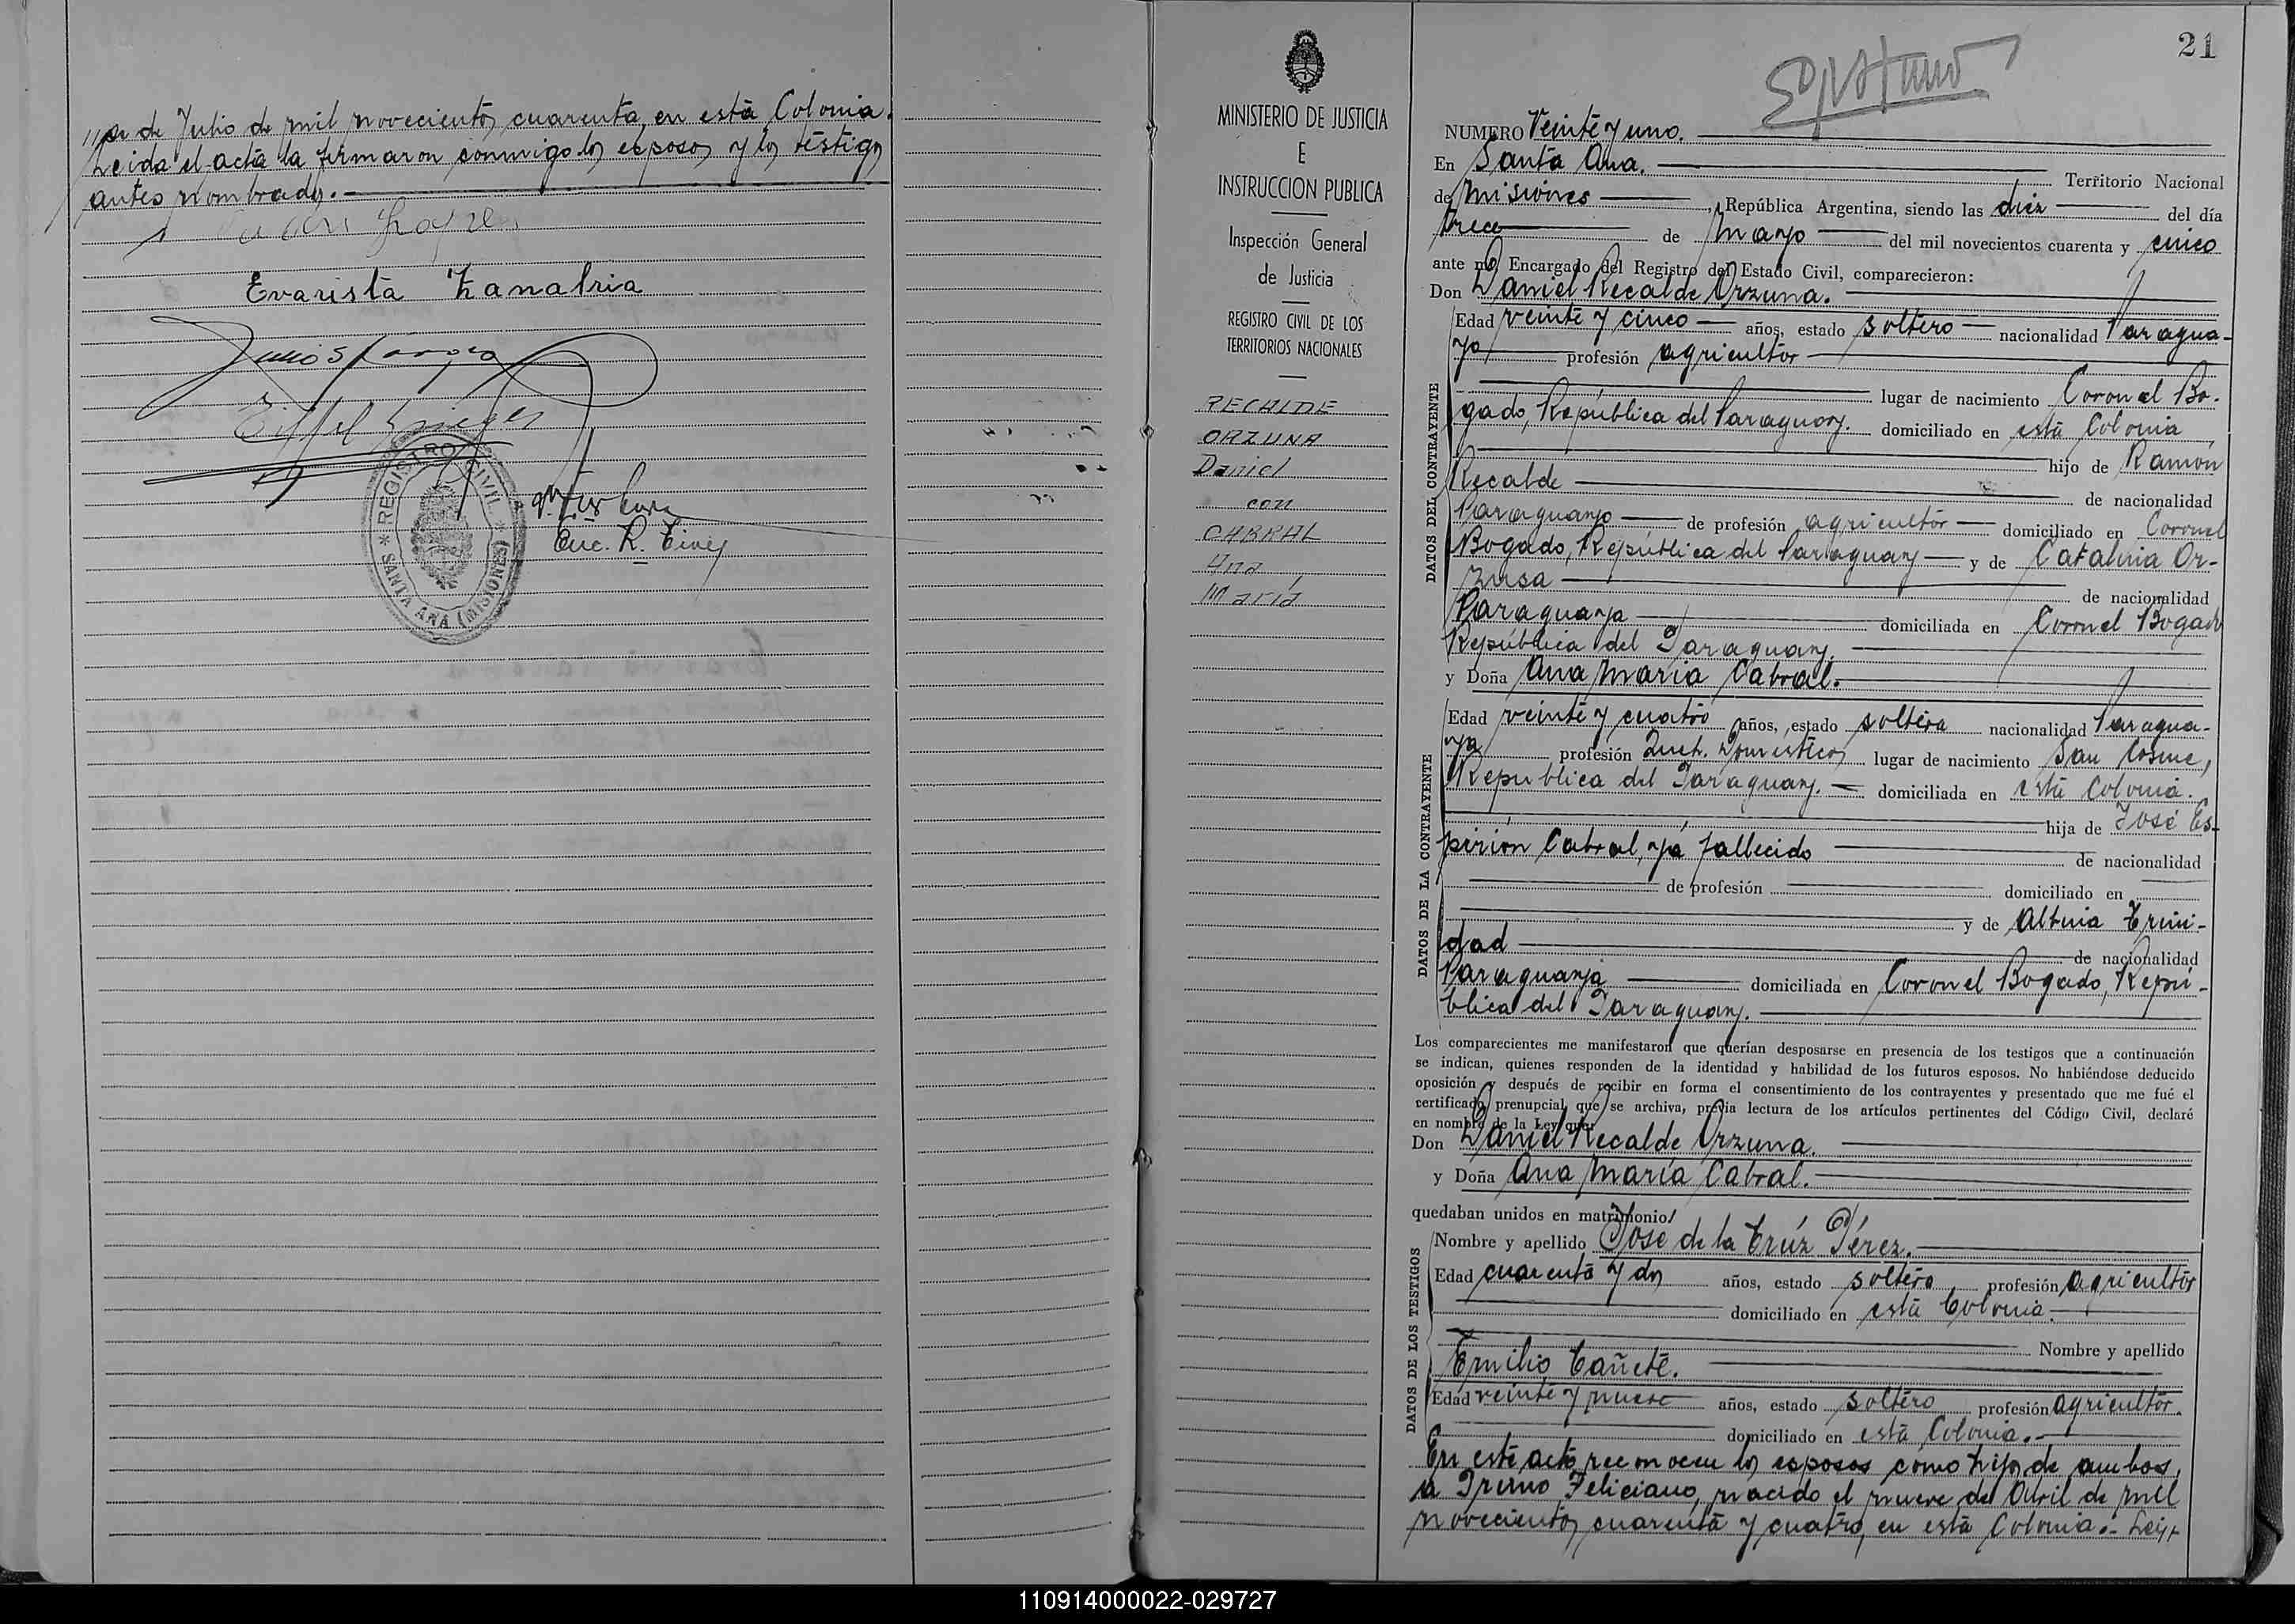 de Julio de mil novecientos cuarenta, en está Colonia.
Leida el acta la firmaron conmigo los esposos y los testigos
antes nombrados.
Evarista Zanabria
Enc. R. Civil
REGISTRO CIVIL
SANTA ANA (MISIONES)
MINISTERIO DE JUSTICIA
E
INSTRUCCION PUBLICA
Inspección General
de Justicia
REGISTRO CIVIL DE LOS
TERRITORIOS NACIONALES
RECALDE
ORZUNA
Daniel
con
CABRAL
Ana
María
21
NUMERO Veinte y uno.
En Santa Ana. Territorio Nacional
de Misiones, República Argentina, siendo las diez del día
trece de Mayo del mil novecientos cuarenta y cinco
ante mí, Encargado del Registro del Estado Civil, comparecieron:
Don Daniel Recalde Orzuna.
DATOS DEL CONTRAYENTE
Edad veinte y cinco años, estado soltero nacionalidad Paragua-
yo profesión agricultor
lugar de nacimiento Coronel Bo-
gado, República del Paraguay. domiciliado en está Colonia
hijo de Ramón
Recalde de nacionalidad
Paraguayo de profesión agricultor domiciliado en Coronel
Bogado, República del Paraguay y de Catalina Or-
zusa de nacionalidad
Paraguaya domiciliada en Coronel Bogado
República del Paraguay.
y Doña Ana María Cabral.
DATOS DE LA CONTRAYENTE
Edad veinte y cuatro años, estado soltera nacionalidad Paragua-
ya profesión Queh. Domesticos lugar de nacimiento San Cosme,
República del Paraguay. domiciliada en está Colonia.
hija de José Es-
pirión Cabral, ya fallecido de nacionalidad
de profesión domiciliado en
y de Altina Trini-
dad de nacionalidad
Paraguaya domiciliada en Coronel Bogado, Repú-
blica del Paraguay.
Los comparecientes me manifestaron que querían desposarse en presencia de los testigos que a continuación
se indican, quienes responden de la identidad y habilidad de los futuros esposos. No habiéndose deducido
oposición y después de recibir en forma el consentimiento de los contrayentes y presentado que me fué el
certificado prenupcial, que se archiva, previa lectura de los artículos pertinentes del Código Civil, declaré
en nombre de la Ley que:
Don Daniel Recalde Orzuna.
y Doña Ana María Cabral.
quedaban unidos en matrimonio
DATOS DE LOS TESTIGOS
Nombre y apellido José de la Crúz Pérez.
Edad cuarenta y dos años, estado soltero profesión agricultor
domiciliado en está Colonia.
Nombre y apellido
Emilio Cañete.
Edad veinte y nueve años, estado soltero profesión agricultor.
domiciliado en está Colonia.
En este acto reconocen los esposos como hijo de ambos,
a Primo Feliciano, nacido el nueve de Abril de mil
novecientos cuarenta y cuatro, en está Colonia.- Leí-
110914000022-029727